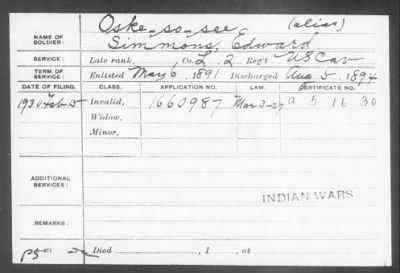 Oske-so-see (alias)
NAME OF SOLDIER: Simmons, Edward
SERVICE: Late rank, Co. L, 2 Reg't US Cav
TERM OF SERVICE: Enlisted May 6, 1891 Discharged Aug 5, 1894
DATE OF FILING. CLASS. APPLICATION NO. LAW. CERTIFICATE NO.
1930 Feb-15 Invalid, 1660987 Mar 3-27 a 5 16 30
Widow,
Minor,
ADDITIONAL SERVICES:
INDIAN WARS
REMARKS:
Died , 1 , at